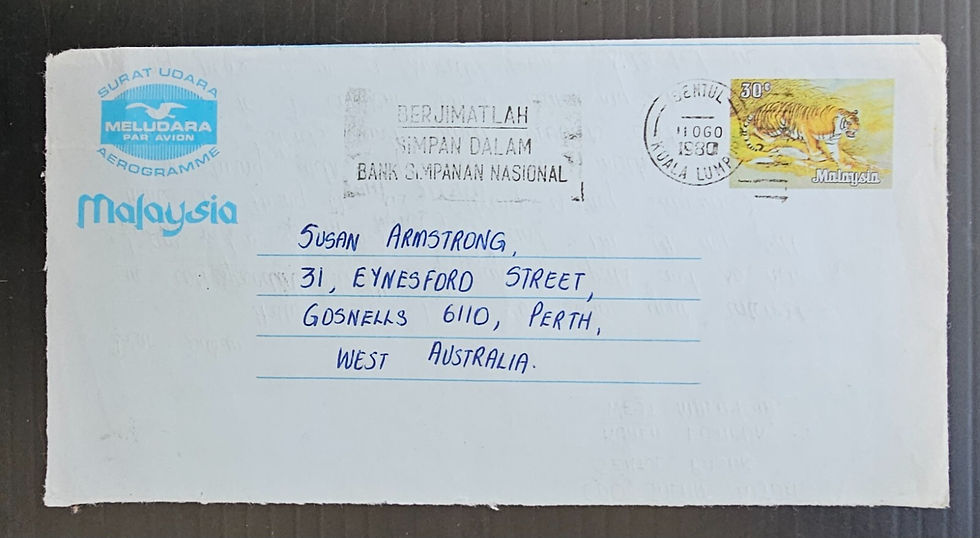 SURAT UDARA
MELUDARA
PAR AVION
AEROGRAMME
Malaysia
BERJIMATLAH
SIMPAN DALAM
BANK SIMPANAN NASIONAL
SENTUL
11 OGO
1980
KUALA LUMP
30¢
Malaysia
SUSAN ARMSTRONG,
31, EYNESFORD STREET,
GOSNELLS 6110, PERTH,
WEST AUSTRALIA.